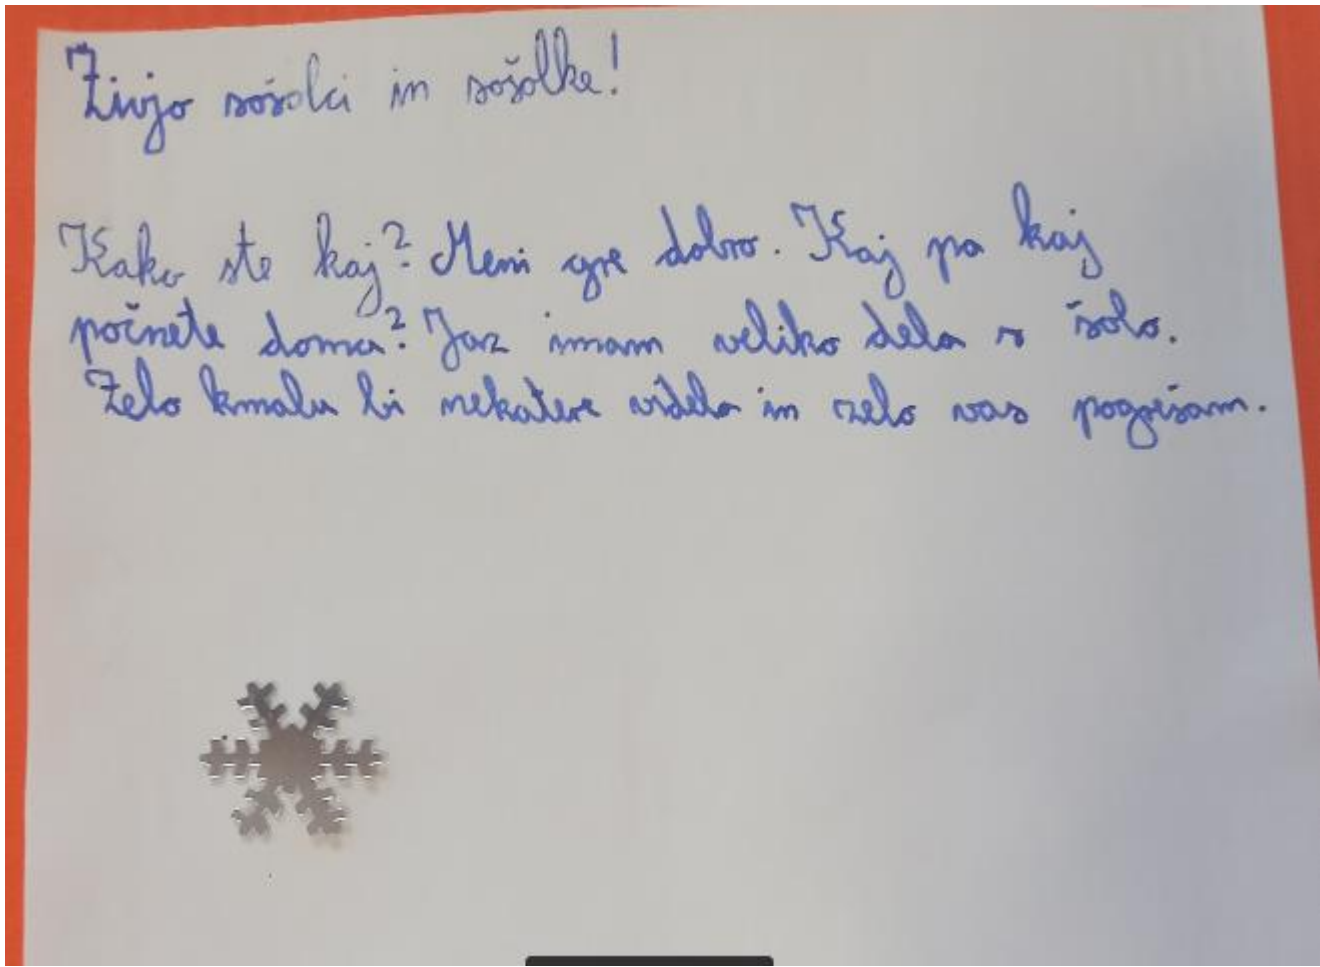 Živjo sošolci in sošolke!
Kako ste kaj? Meni gre dobro. Kaj pa kaj
počnete doma? Jaz imam veliko dela s šolo.
Zelo kmalu bi nekatere videla in zelo vas pogrešam.